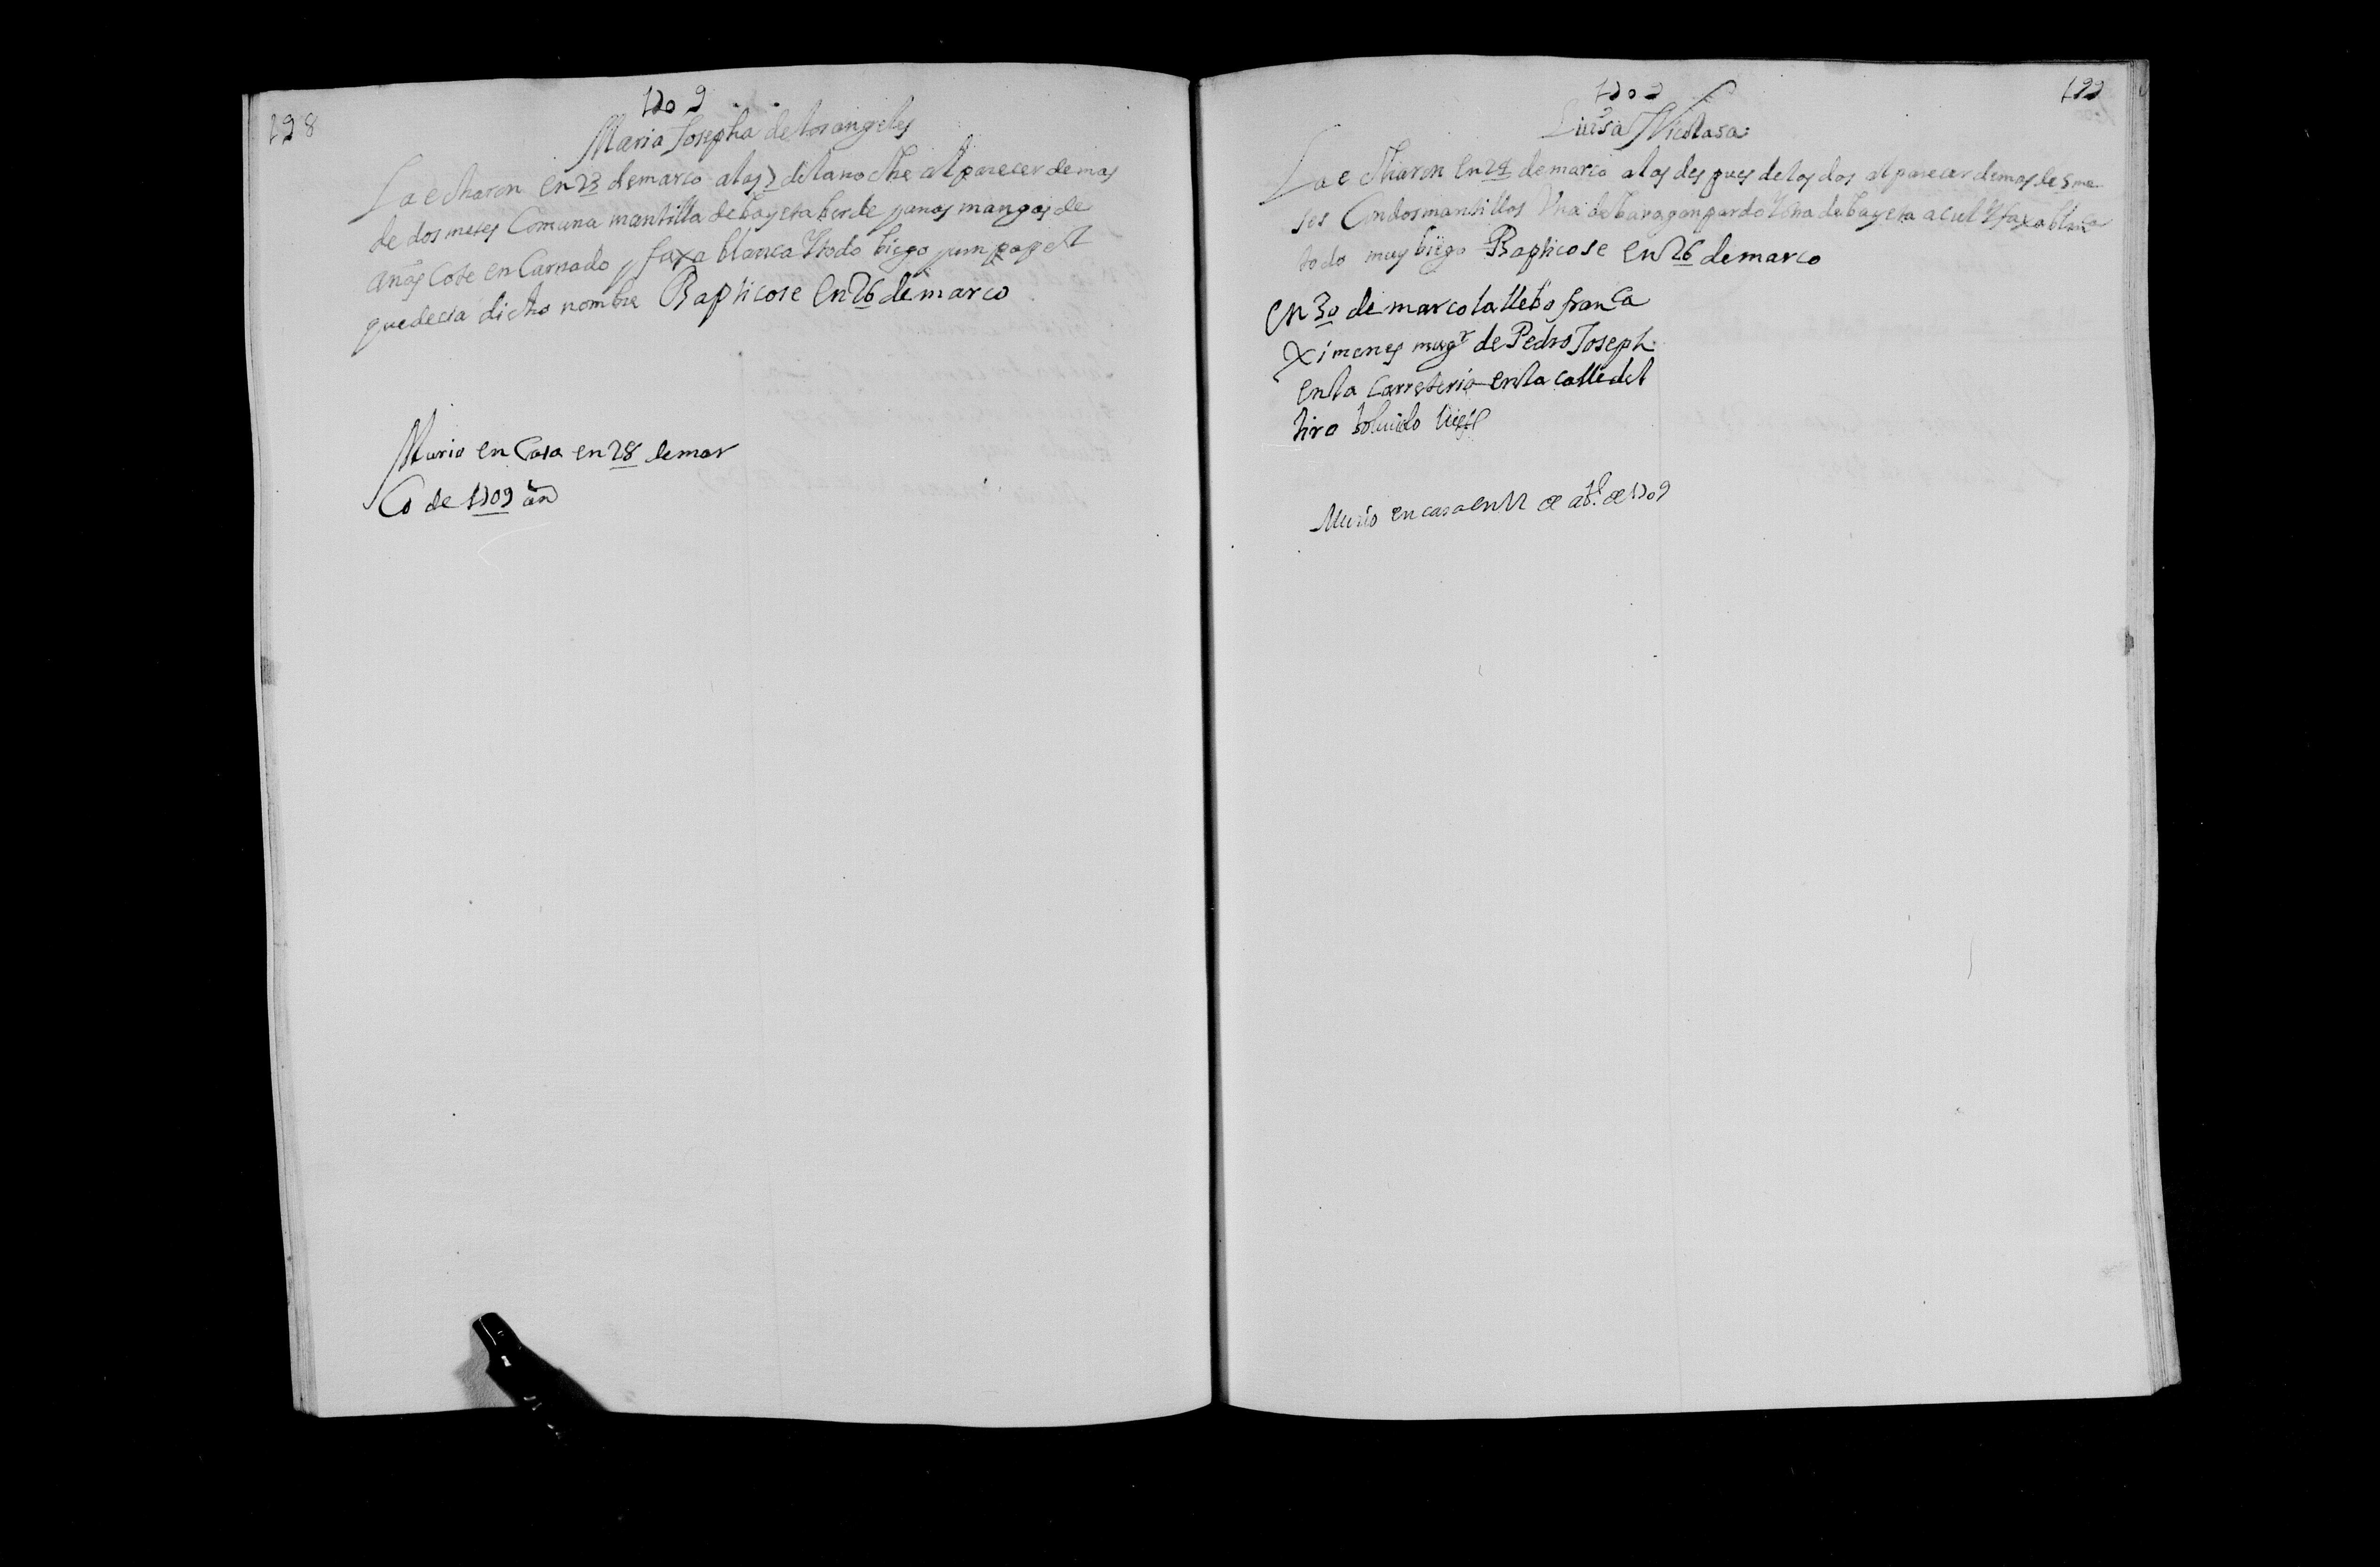 198
1709
Maria Josepha de los angeles
La echaron en 23 de marco a las 7 de la noche al parecer de mas
de dos meses Con una mantilla de bayeta berde y unas mangas de
anascote en Carnado y faxa blanca Y todo biego y un papel
que decia dicho nombre Bapticose en 26 de marco
Murio en Casa en 28 de mar
co de 1709 an
199
1709
Luisa Nicolasa
La echaron en 24 de marco a las des pues de las dos al parecer de mas de 5 me
ses Con dos mantillas Una de baragan pardo Y otra de bayeta acul Y faxa blanca
todo muy biego Bapticose en 26 de marco
en 30 de marco la llebo franca
Ximenes mugr de Pedro Joseph
en la Carreteria en la calle del
tiro
Murio en casa en 12 de abl de 1709